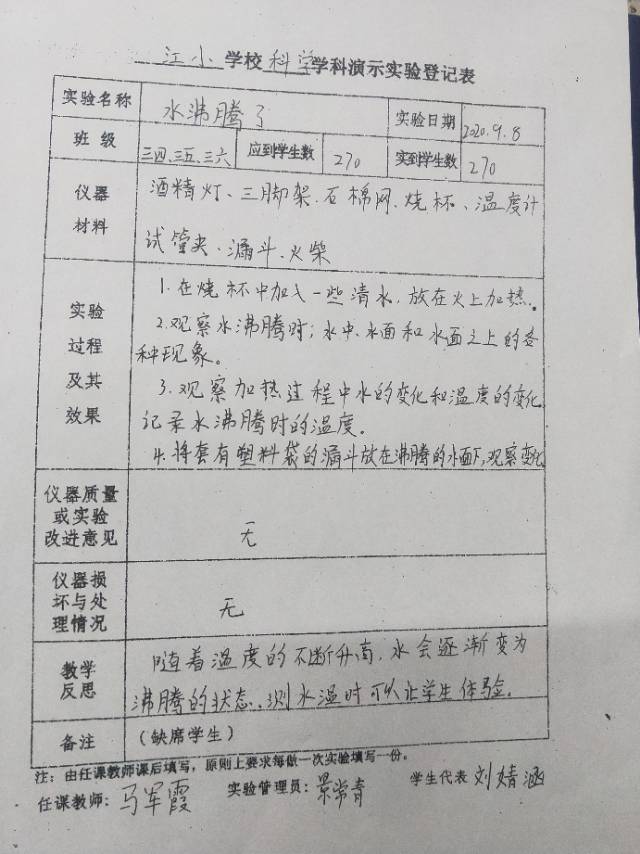 江小学校科学学科演示实验登记表
实验名称 水沸腾了 实验日期 2020.9.8
班级 三四、三五、三六 应到学生数 270 实到学生数 270
仪器 酒精灯、三脚架、石棉网、烧杯、温度计
材料 试管夹、漏斗、火柴
1.在烧杯中加入一些清水,放在火上加热。
实验 2.观察水沸腾时;水中、水面和水面之上的各
过程 种现象。
及其 3.观察加热过程中水的变化和温度的变化
效果 记录水沸腾时的温度。
4.将套有塑料袋的漏斗放在沸腾的水面下,观察变化
仪器质量
或实验
改进意见 无
仪器损
坏与处
理情况 无
教学 随着温度的不断升高,水会逐渐变为
反思 沸腾的状态.测水温时可以让学生体验.
备注 (缺席学生)
注:由任课教师课后填写,原则上要求每做一次实验填写一份。
任课教师:马军霞 实验管理员:景常青 学生代表 刘婧涵